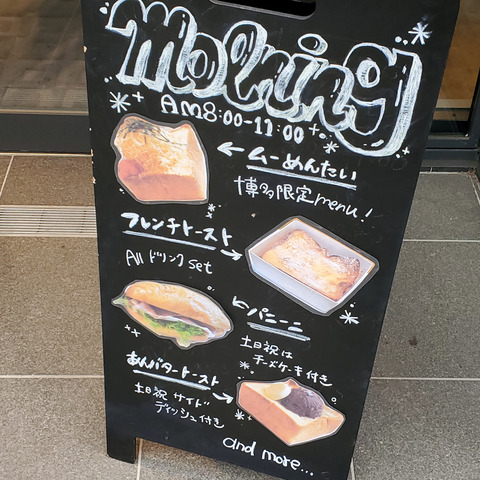 Morning
AM8:00-11:00
←ムーめんたい
博多限定menu!
フレンチトースト
All ドリンク set
パニーニ
土日祝は
チーズケーキ付き
あんバタートースト
土日祝 サイド
ディッシュ付き
and more...